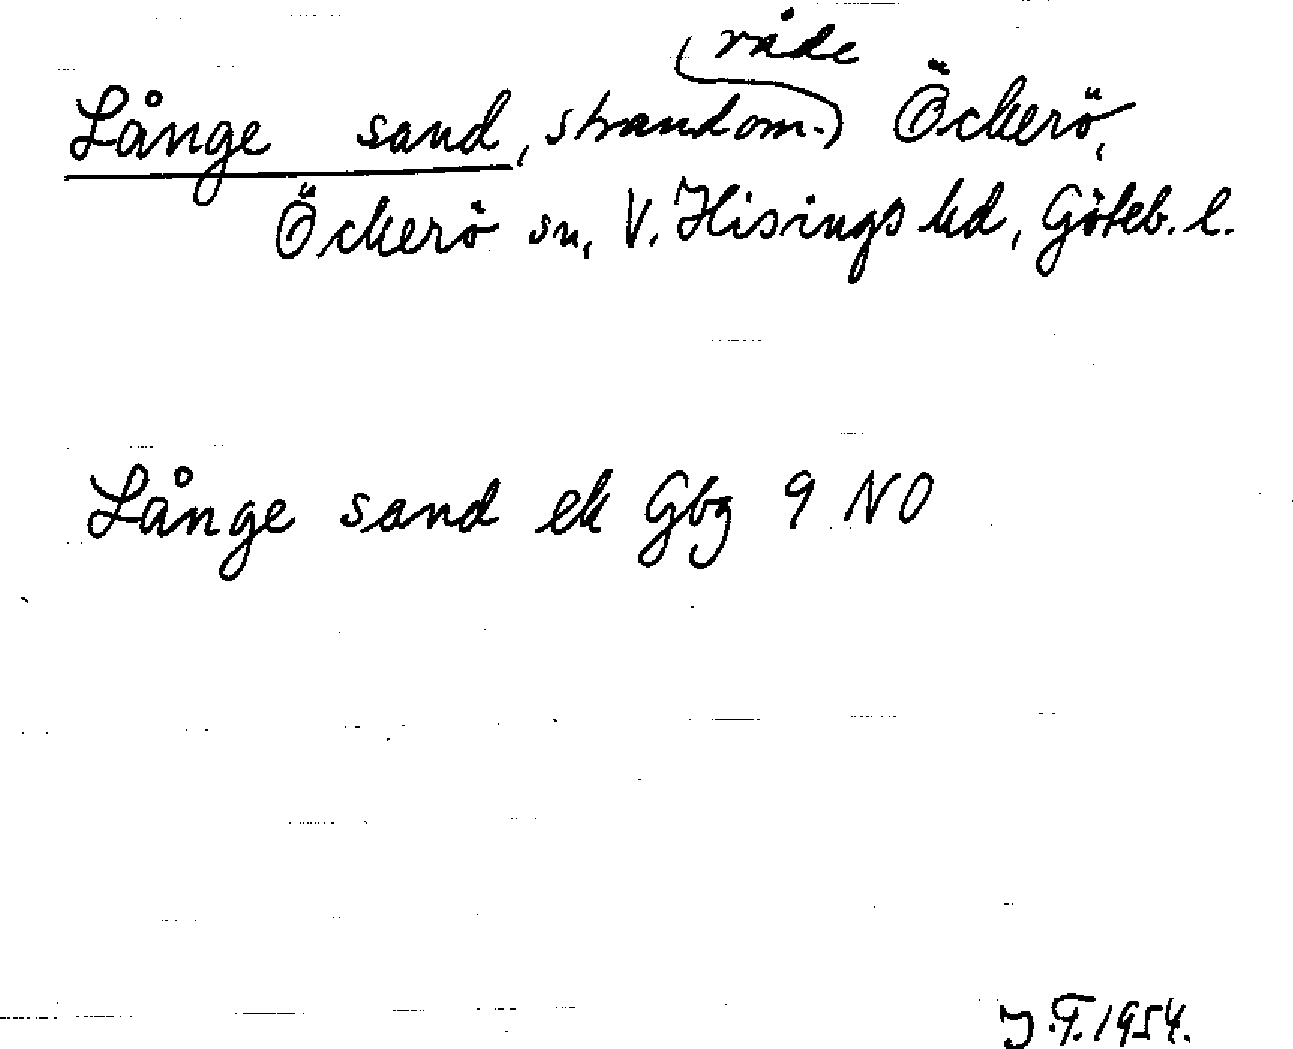 Långe sand, strandområde Öckerö,
Öckerö sn, V. Hisings hd, Göteb. l.
Långe sand ek Gbg 9 NO
J.F. 1954.